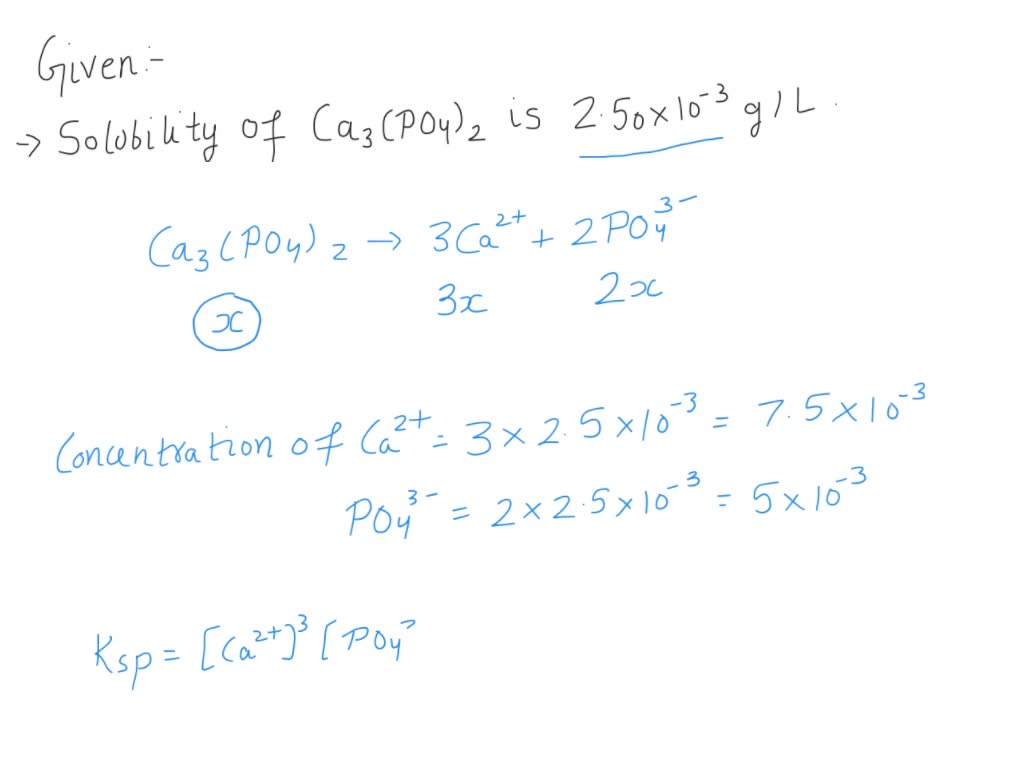 Given:-
→ Solubility of Ca₃(PO₄)₂ is 2.50×10⁻³ g/L.
Ca₃(PO₄)₂ → 3Ca²⁺ + 2PO₄³⁻
x 3x 2x
Concentration of Ca²⁺ = 3×2.5×10⁻³ = 7.5×10⁻³
PO₄³⁻ = 2×2.5×10⁻³ = 5×10⁻³
Ksp = [Ca²⁺]³ [PO₄